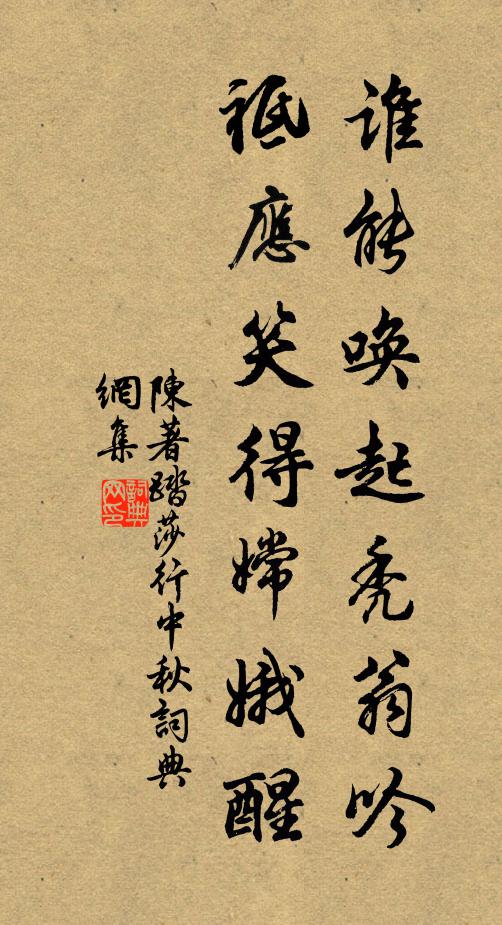 誰能唤起秃翁吟
祗應笑得嫦娥醒
陳著踏莎行中秋詞典
網集
詞典網印